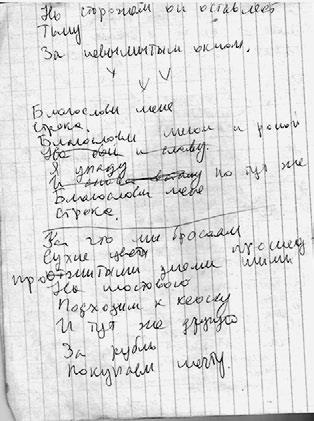 Но сторожам он оставлен
Тьму
За невымытым окном.
Благослови меня
строка.
Благослови мечом и раной
и
Я упаду
но тут же
Благослови меня
строка.
За что мы бросаем
Сухие цветы
прошедшими
На мостовою
Подходим к киоску
И тут же другую
За рубль
Покупаем мечту.